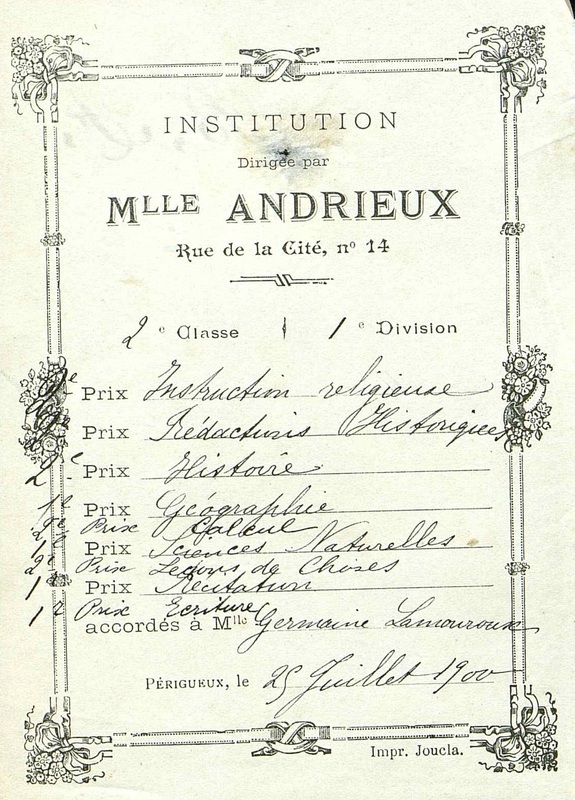 INSTITUTION
Dirigée par
MLLE ANDRIEUX
Rue de la Cité, nº 14
2 e Classe 1 e Division
Prix Instruction religieuse
Prix Rédactions Historiques
2e Prix Histoire
1er Prix Géographie
2e Prix Calcul
1er Prix Sciences Naturelles
2e Prix Leçons de Choses
1er Prix Récitation
1er Prix Ecriture
accordés à Mlle Germaine Lamouroux
PÉRIGUEUX, le 25 Juillet 1900
Impr. Joucla.